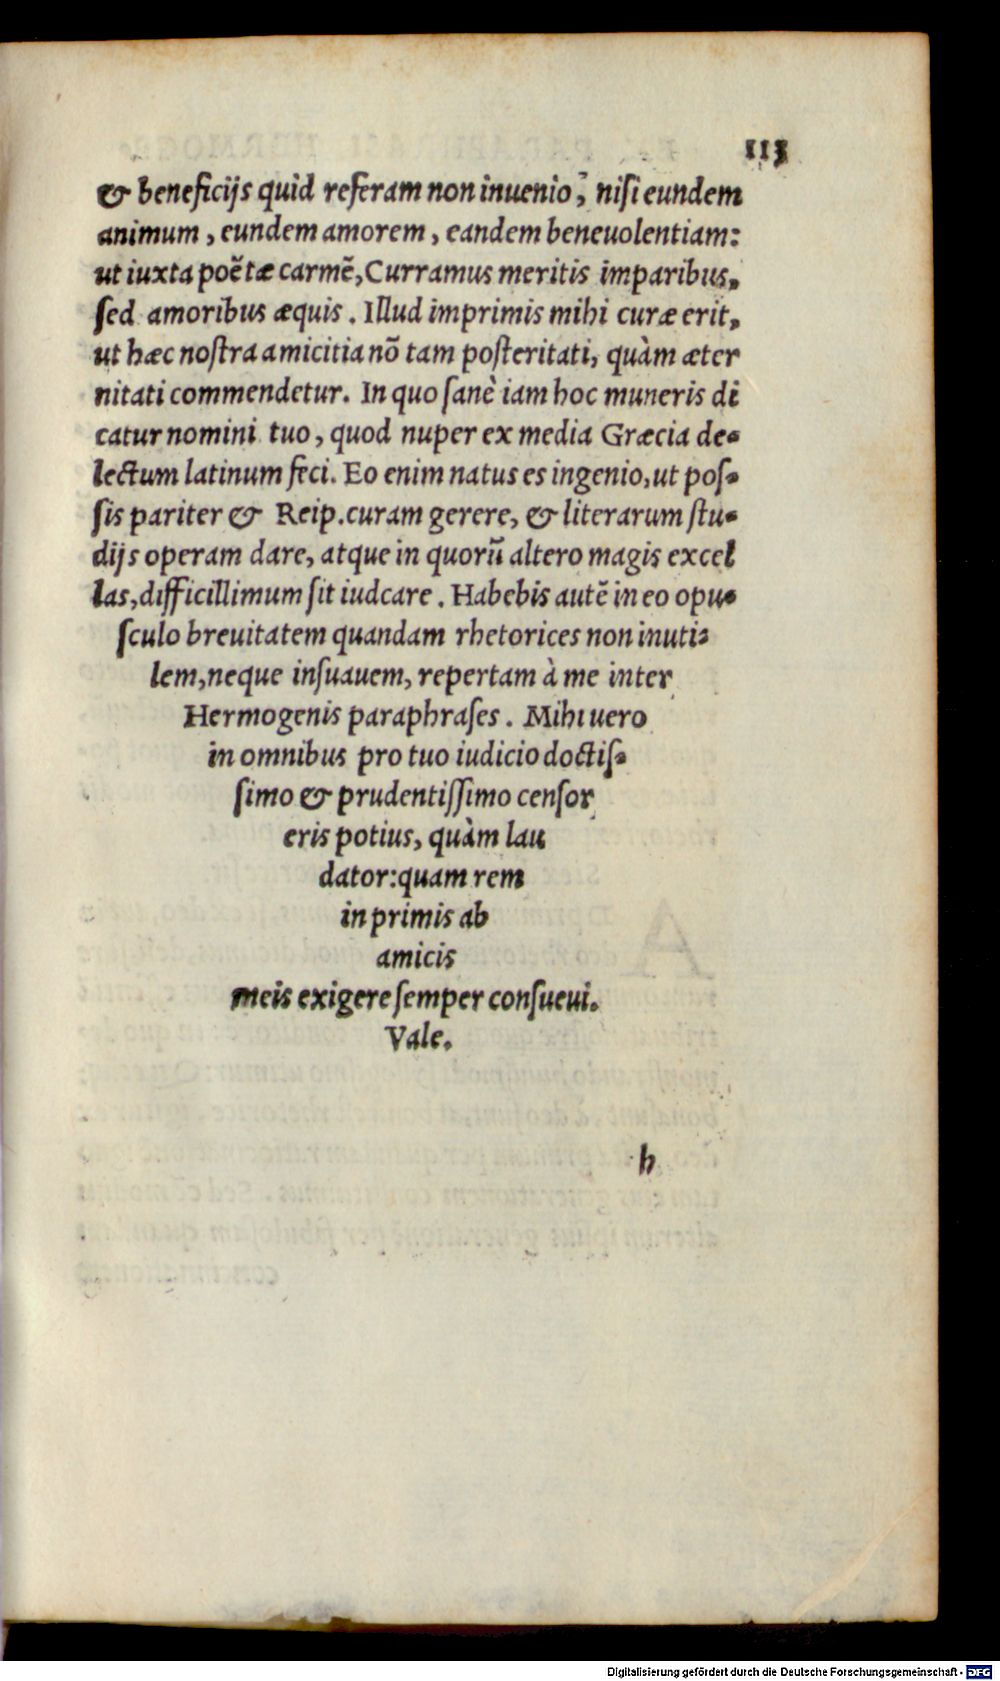 113
& beneficijs quid referam non inuenio, nisi eundem
animum, eundem amorem, eandem beneuolentiam:
ut iuxta poẽtæ carmẽ, Curramus meritis imparibus,
ſed amoribus æquis. Illud imprimis mihi curæ erit,
ut hæc noſtra amicitia nõ tam poſteritati, quàm æter
nitati commendetur. In quo ſanè iam hoc muneris di
catur nomini tuo, quod nuper ex media Græcia de-
lectum latinum feci. Eo enim natus es ingenio, ut poſ-
ſis pariter & Reip. curam gerere, & literarum ſtu-
dijs operam dare, atque in quorũ altero magis excel
las, difficillimum ſit iudcare. Habebis autẽ in eo opu-
ſculo breuitatem quandam rhetorices non inuti-
lem, neque inſuauem, repertam à me inter
Hermogenis paraphraſes. Mihi uero
in omnibus pro tuo iudicio doctiſ-
ſimo & prudentiſſimo cenſor
eris potius, quàm lau
dator: quam rem
in primis ab
amicis
meis exigere ſemper conſueui.
Vale.
h
Digitalisierung gefördert durch die Deutsche Forschungsgemeinschaft - DFG